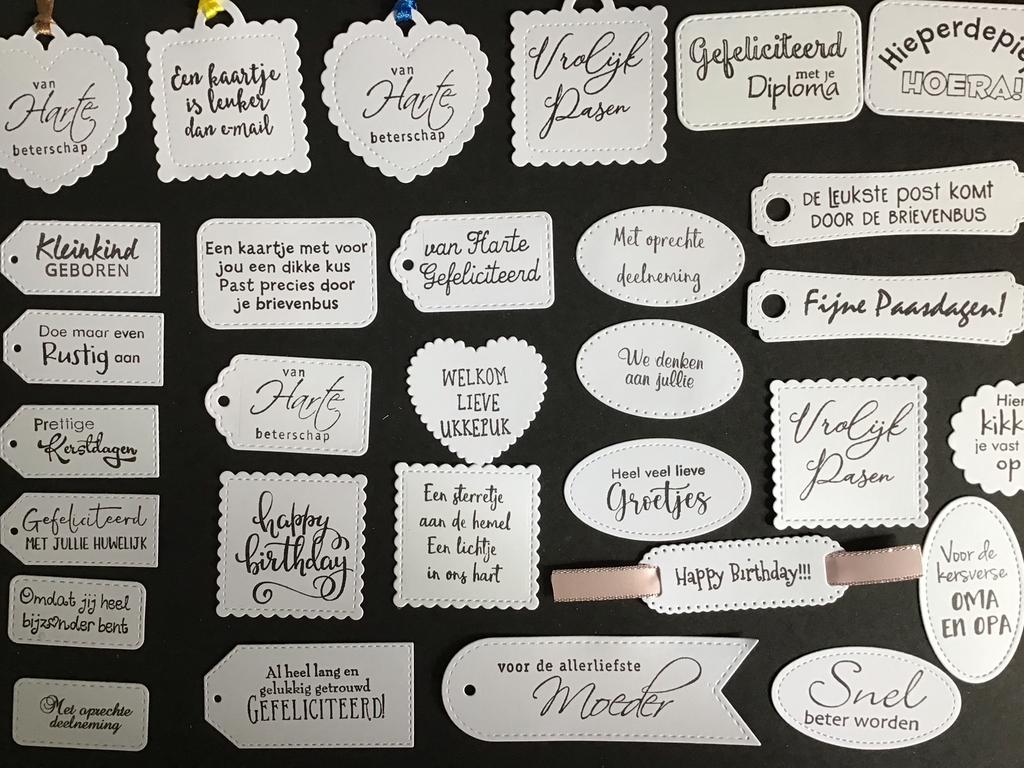 van
Harte
beterschap
Een kaartje
is leuker
dan e-mail
van
Harte
beterschap
Vrolijk
Pasen
Gefeliciteerd
met je
Diploma
Hieperdepie
HOERA!
DE LEUKSTE POST KOMT
DOOR DE BRIEVENBUS
Kleinkind
GEBOREN
Een kaartje met voor
jou een dikke kus
Past precies door
je brievenbus
van Harte
Gefeliciteerd
Met oprechte
deelneming
Fijne Paasdagen!
Doe maar even
Rustig aan
van
Harte
beterschap
WELKOM
LIEVE
UKKEPUK
We denken
aan jullie
Vrolijk
Pasen
Hier
kikk
je vast
op
Prettige
Kerstdagen
Heel veel lieve
Groetjes
Gefeliciteerd
MET JULLIE HUWELIJK
happy
birthday
Een sterretje
aan de hemel
Een lichtje
in ons hart
Happy Birthday!!!
Voor de
kersverse
OMA
EN OPA
Omdat jij heel
bijzonder bent
Met oprechte
deelneming
Al heel lang en
gelukkig getrouwd
GEFELICITEERD!
voor de allerliefste
Moeder
Snel
beter worden